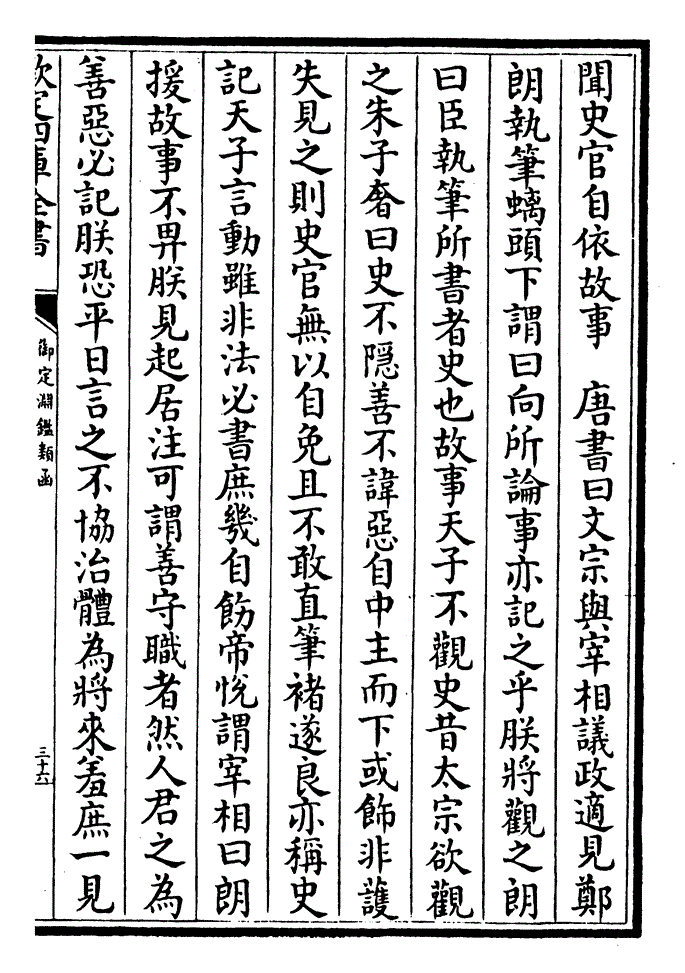 聞史官自依故事　唐書曰文宗與宰相議政適見鄭
朗執筆螭頭下謂曰向所論事亦記之乎朕將觀之朗
曰臣執筆所書者史也故事天子不觀史昔太宗欲觀
之朱子奢曰史不隱善不諱惡自中主而下或飾非護
失見之則史官無以自免且不敢直筆褚遂良亦稱史
記天子言動雖非法必書庶幾自飭帝悅謂宰相曰朗
援故事不畀朕見起居注可謂善守職者然人君之為
善惡必記朕恐平日言之不協治體為將來羞庶一見
欽定四庫全書
御定淵鑑類函
三十六